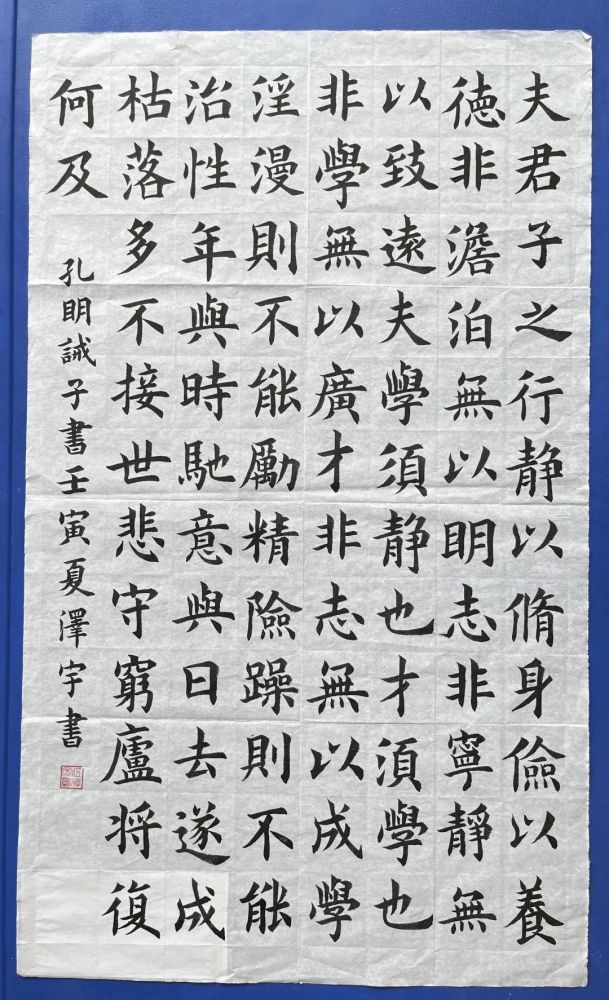 夫君子之行静以脩身儉以養
徳非澹泊無以明志非寧静無
以致遠夫學須静也才須學也
非學無以廣才非志無以成學
淫漫則不能勵精險躁則不能
治性年與時馳意與日去遂成
枯落多不接世悲守窮廬将復
何及
孔明誡子書壬寅夏澤宇書